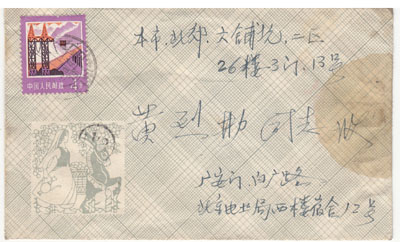 本市,北郊,六铺炕,二区
26楼-3门,13号
中国人民邮政
黄烈勋同志收
广安门,白广路
北京电业局西楼宿舍12号